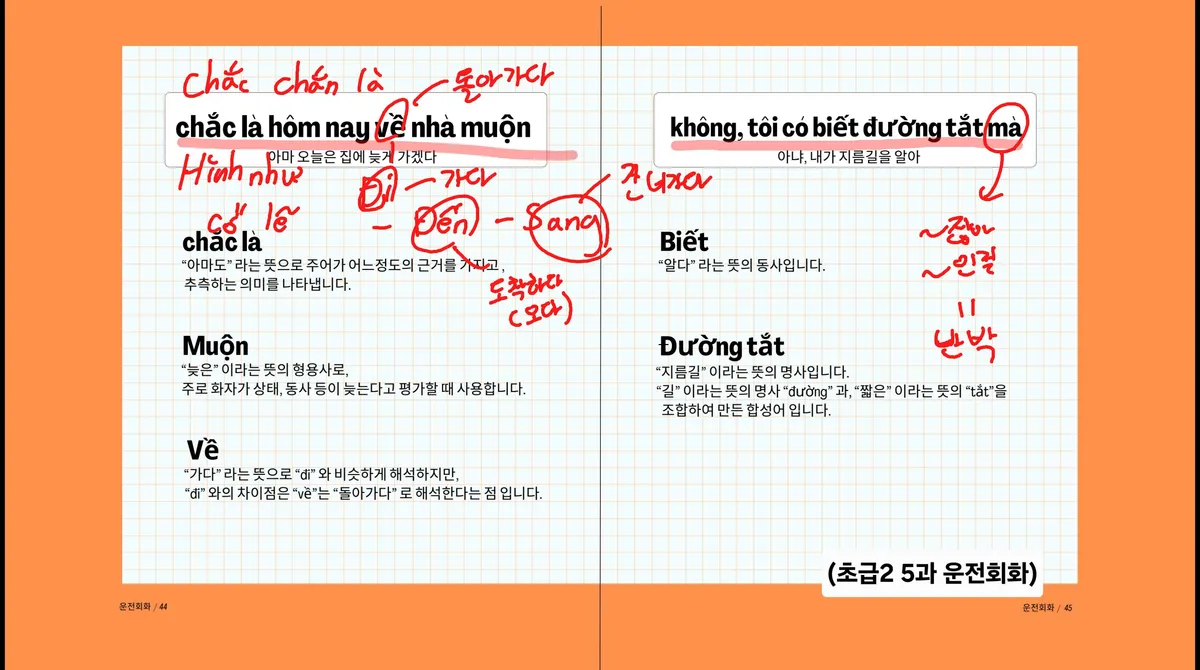 Chắc chắn là
돌아가다
chắc là hôm nay về nhà muộn
아마 오늘은 집에 늦게 가겠다
Hình như
Đi - 가다
có lẽ
- Đến - Sang
건너가다
도착하다
(오다)
chắc là
“아마도” 라는 뜻으로 주어가 어느정도의 근거를 가지고 ,
추측하는 의미를 나타냅니다.
Muộn
“늦은” 이라는 뜻의 형용사로,
주로 화자가 상태, 동사 등이 늦는다고 평가할 때 사용합니다.
Về
“가다” 라는 뜻으로 “đi” 와 비슷하게 해석하지만,
“đi” 와의 차이점은 “về”는 “돌아가다” 로 해석한다는 점 입니다.
운전회화 / 44
không, tôi có biết đường tắt mà
아냐, 내가 지름길을 알아
~잖아
~인걸
=
반박
Biết
“알다” 라는 뜻의 동사입니다.
Đường tắt
“지름길” 이라는 뜻의 명사입니다.
“길” 이라는 뜻의 명사 “đường” 과, “짧은” 이라는 뜻의 “tắt”을
조합하여 만든 합성어 입니다.
(초급2 5과 운전회화)
운전회화 / 45